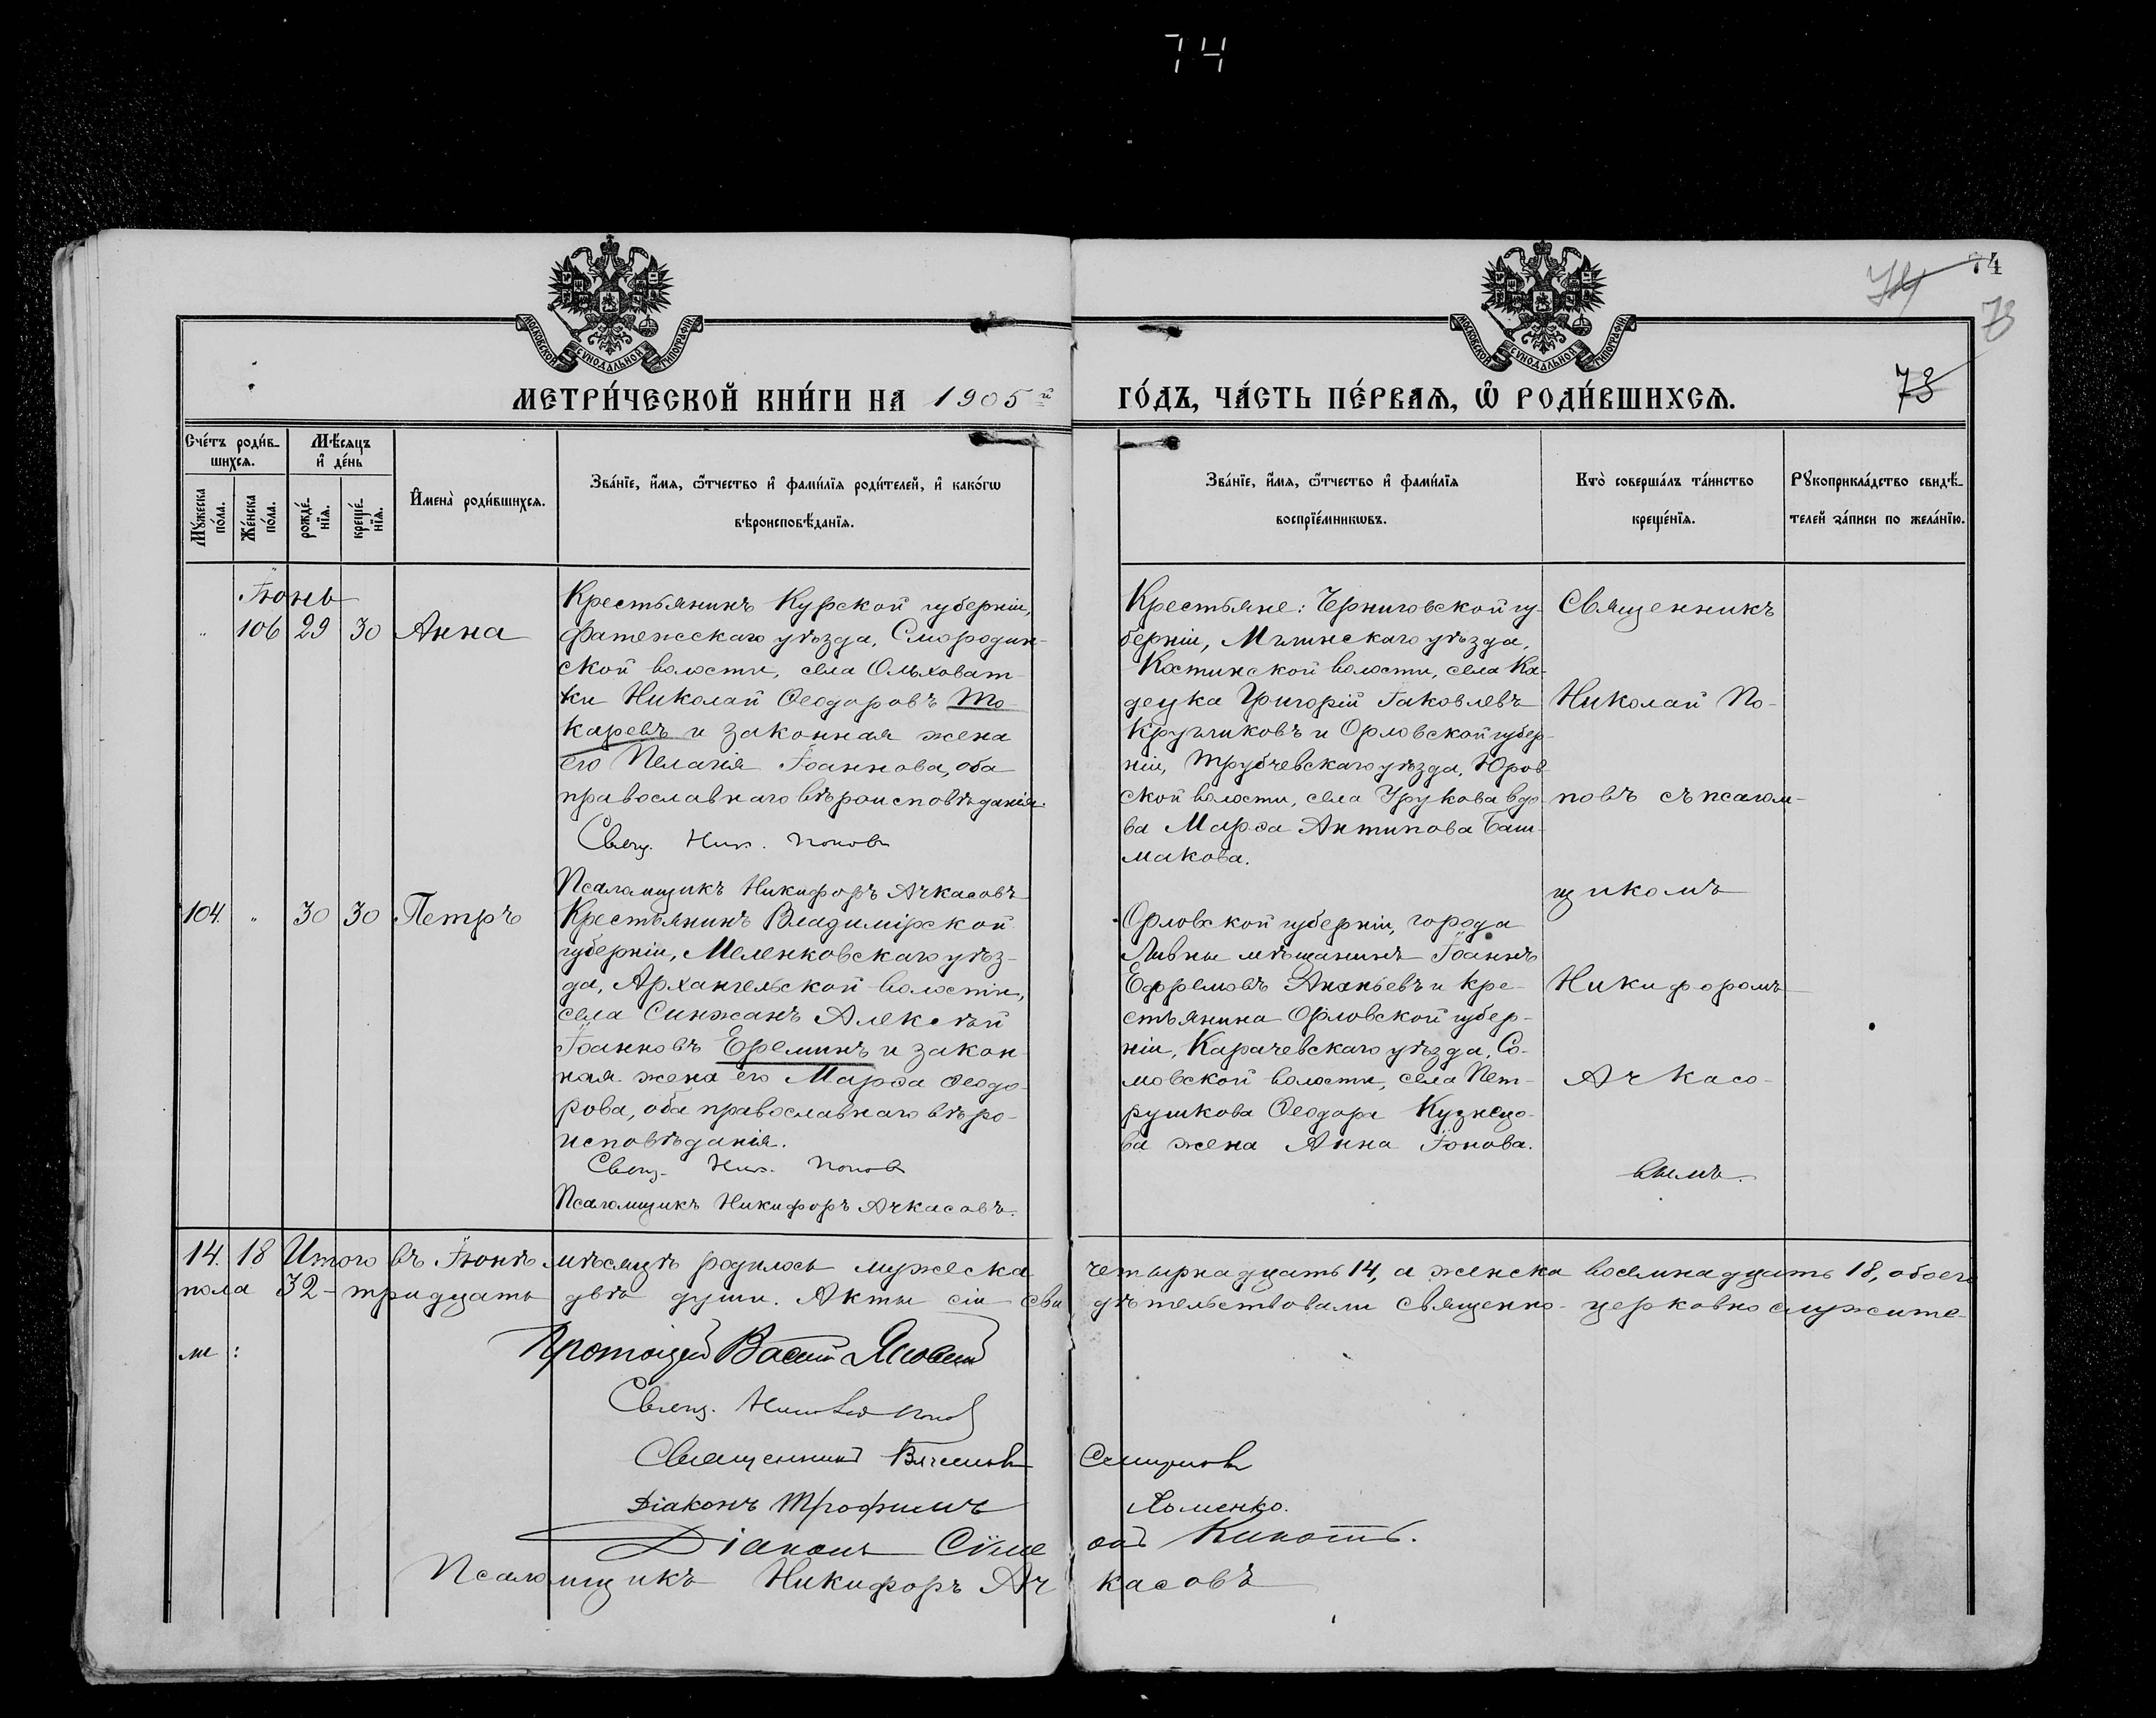 74
74
74
73
73
МОСКОВСКОЙ СѴНОДАЛЬНОЙ ТИПОГРАФІИ
МОСКОВСКОЙ СѴНОДАЛЬНОЙ ТИПОГРАФІИ
МЕТРИ́ЧЕСКОЙ КНИ́ГИ НА 1905й ГО́ДЪ, ЧА́СТЬ ПЕ́РВАѦ, Ѡ҆ РОДИ́ВШИХСѦ.
Сче́тъ роди́в-
шихсѧ.
Мꙋ́жеска
по́ла.
Же́нска
по́ла.
Мѣ́сѧцъ
и҆ де́нь
рожде́-
нїѧ.
креще́-
нїѧ.
И҆мена̀ роди́вшихсѧ.
Зва́нїе, и҆́мѧ, ѻ҆́тчество и҆ фами́лїѧ роди́телей, и҆ како́гѡ
вѣроисповѣ́данїѧ.
Зва́нїе, и҆́мѧ, ѻ҆́тчество и҆ фами́лїѧ
воспрїе́мникѡвъ.
Кто̀ соверша́лъ та́инство
креще́нїѧ.
Рꙋкоприкла́дство свидѣ́-
телей за́писи по жела́нїю.
Іюнь
" 106 29 30 Анна
Крестьянинъ Курской губерніи,
Фатежскаго уѣзда, Смородин-
ской волости, села Ольховат-
ки Николай Ѳеодоровъ То-
каревъ и законная жена
его Пелагія Іоаннова, оба
православнаго вѣроисповѣданія.
Свящ. Ник. Поповъ
Псаломщикъ Никифоръ Ачкасовъ
Крестьяне: Черниговской гу-
берніи, Мглинскаго уѣзда,
Костинской волости, села Ка-
децка Григорій Іаковлевъ
Кругликовъ и Орловской губер-
ніи, Трубчевскаго уѣзда, Юров-
ской волости, села Урукова вдо-
ва Марѳа Антипова Баш-
макова.
Священникъ
Николай По-
повъ съ псалом-
щикомъ
Никифоромъ
Ачкасо-
вымъ.
104. " 30 30 Петръ
Крестьянинъ Владимірской
губерніи, Меленковскаго уѣз-
да, Архангельской волости,
села Синжанъ Алексѣй
Іоанновъ Ереминъ и закон-
ная жена его Марѳа Ѳеодо-
рова, оба православнаго вѣро-
исповѣданія.
Свящ. Ник. Поповъ
Псаломщикъ Никифоръ Ачкасовъ.
Орловской губерніи, города
Ливны мѣщанинъ Іоаннъ
Ефремовъ Ананьевъ и кре-
стьянина Орловской губер-
ніи, Карачевскаго уѣзда, Со-
мовской волости, села Пет-
рушкова Ѳеодора Кузнецо-
ва жена Анна Іонова.
14. 18 Итого въ Іюнѣ мѣсяцѣ родилось мужеска четырнадцать 14, а женска восемнадцать 18, обоего
пола 32 - тридцать двѣ души. Акты сіи свидѣтельствовали священно-церковнослужите-
ли:
Протоіерей Василій
Свящ. Николай Поповъ
Священникъ Вячеславъ Смирновъ
Діаконъ Трофимъ Хоменко.
Діаконъ Сѵмеонъ
Псаломщикъ Никифоръ Ачкасовъ